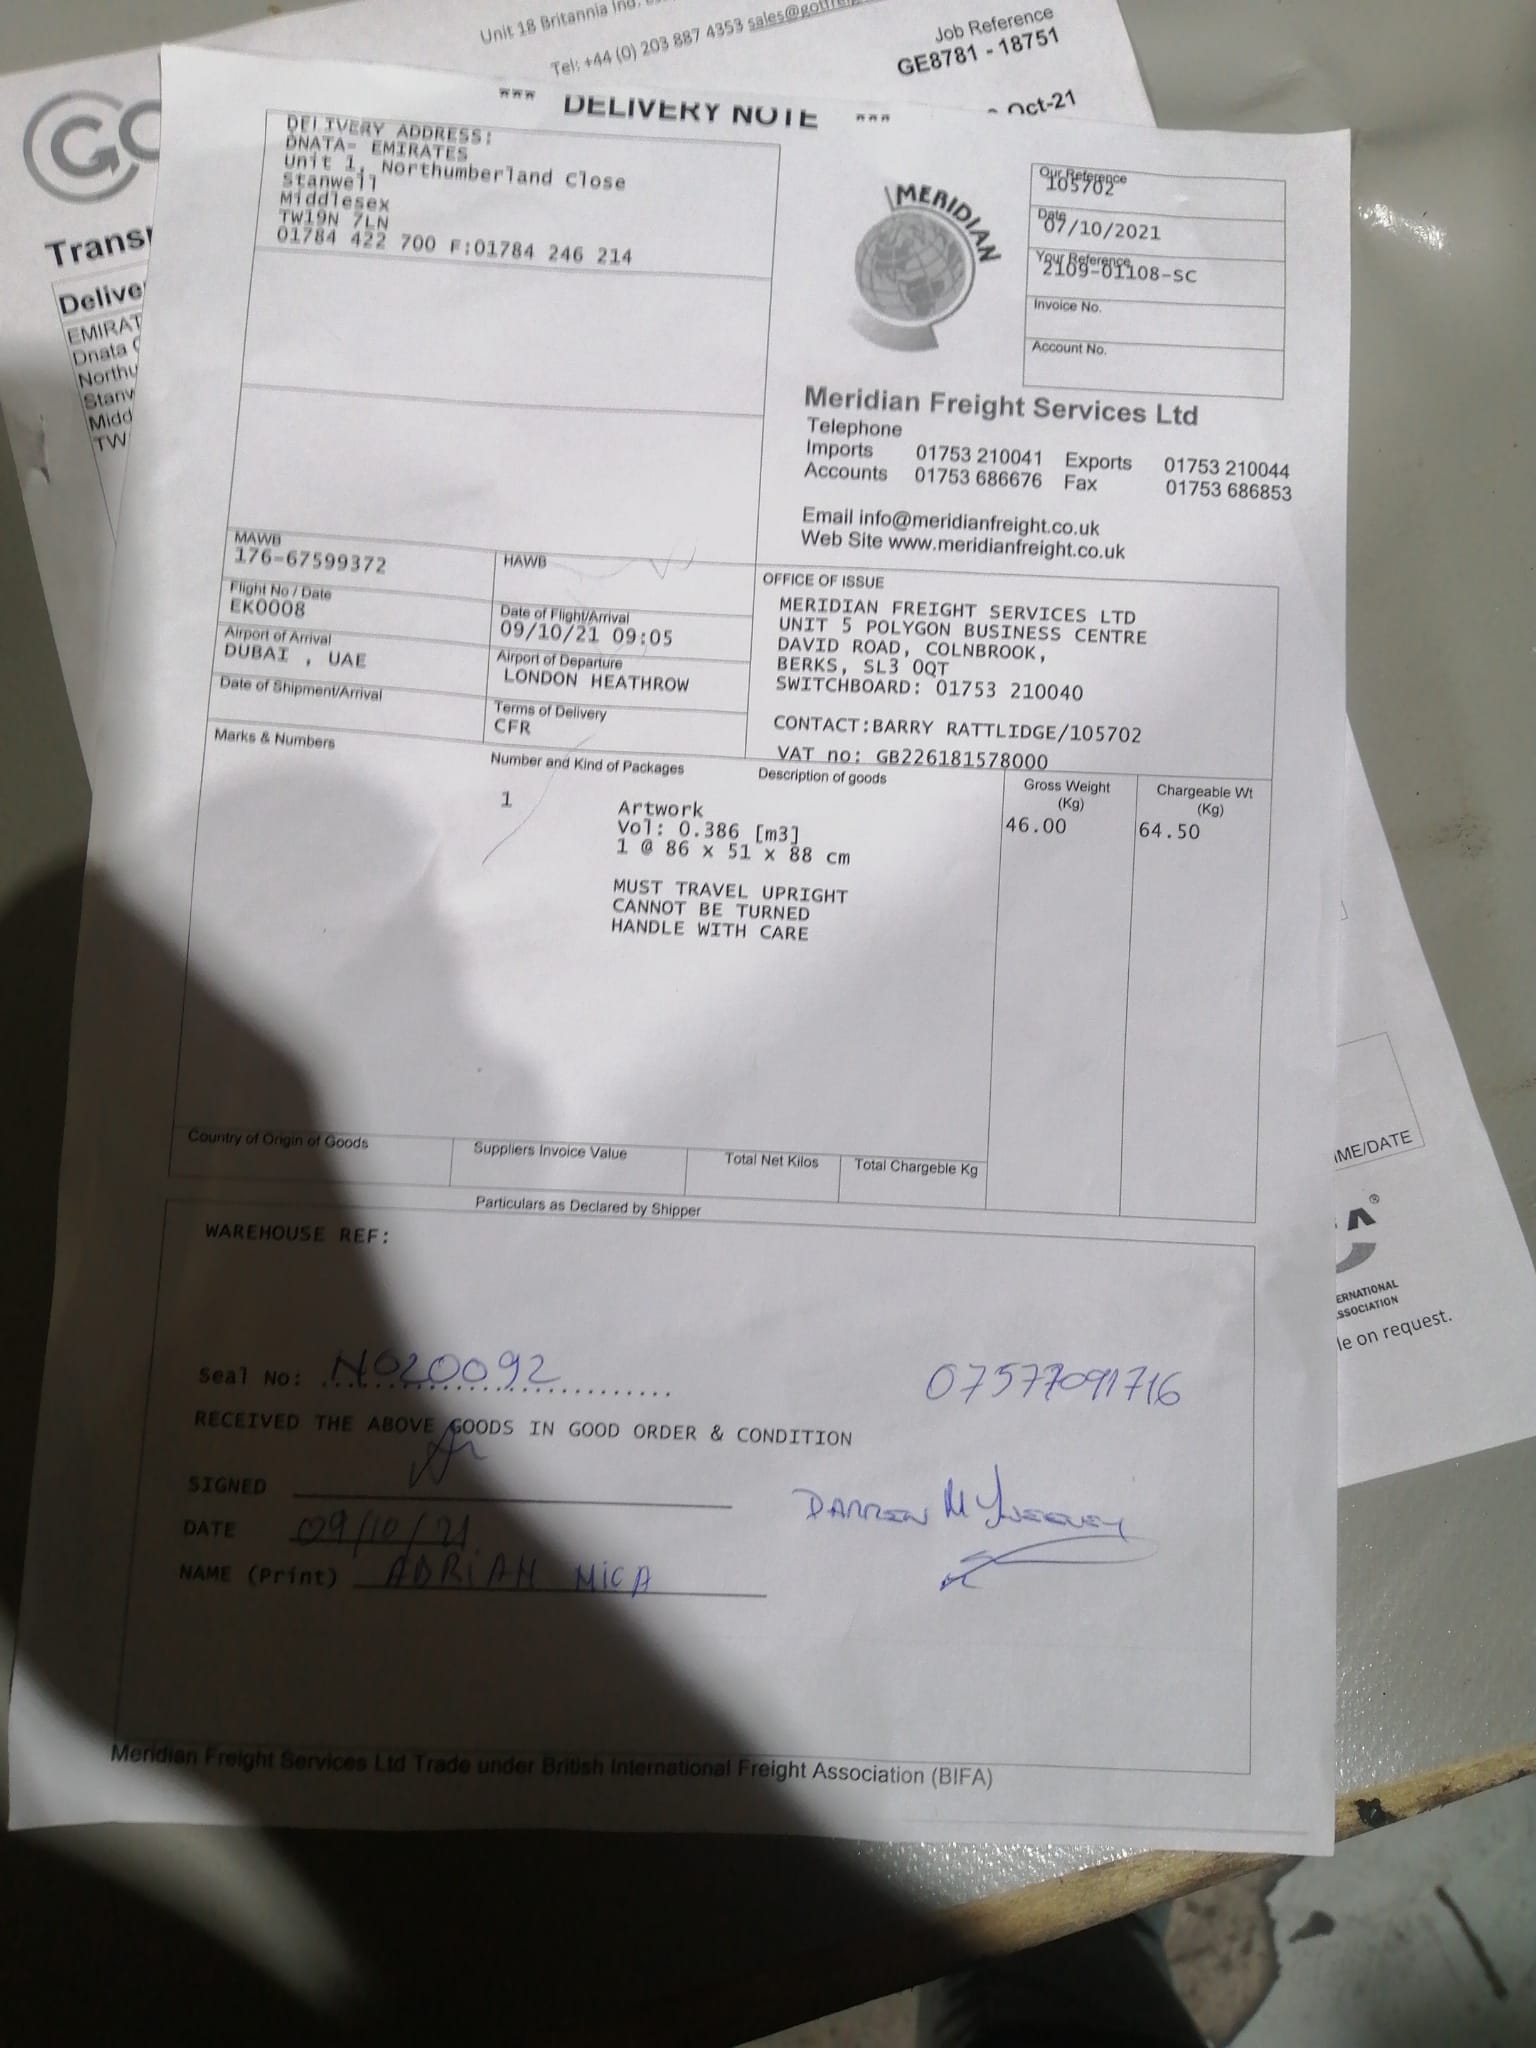 Unit 18 Britannia Ind.
Tel: +44 (0) 203 887 4353 sales@gotfreig
Job Reference
GE8781 - 18751
Oct-21
GO
Trans
Delive
EMIRAT
Dnata
Northu
Stanw
Midd
TW
*** DELIVERY NOTE ***
DELIVERY ADDRESS:
DNATA- EMIRATES
Unit 1, Northumberland Close
Stanwell
Middlesex
TW19N 7LN
01784 422 700 F:01784 246 214
MERIDIAN
Our Reference
105702
Date
07/10/2021
Your Reference
2109-01108-SC
Invoice No.
Account No.
Meridian Freight Services Ltd
Telephone
Imports 01753 210041 Exports 01753 210044
Accounts 01753 686676 Fax 01753 686853
Email info@meridianfreight.co.uk
Web Site www.meridianfreight.co.uk
MAWB
176-67599372
HAWB
Flight No / Date
EK0008
Date of Flight/Arrival
09/10/21 09:05
Airport of Arrival
DUBAI , UAE
Airport of Departure
LONDON HEATHROW
Date of Shipment/Arrival
Terms of Delivery
CFR
OFFICE OF ISSUE
MERIDIAN FREIGHT SERVICES LTD
UNIT 5 POLYGON BUSINESS CENTRE
DAVID ROAD, COLNBROOK,
BERKS, SL3 0QT
SWITCHBOARD: 01753 210040
CONTACT:BARRY RATTLIDGE/105702
VAT no: GB226181578000
Marks & Numbers
Number and Kind of Packages
Description of goods
Gross Weight
(Kg)
Chargeable Wt
(Kg)
1 Artwork 46.00 64.50
Vol: 0.386 [m3]
1 @ 86 x 51 x 88 cm
MUST TRAVEL UPRIGHT
CANNOT BE TURNED
HANDLE WITH CARE
Country of Origin of Goods
Suppliers Invoice Value
Total Net Kilos
Total Chargeble Kg
Particulars as Declared by Shipper
WAREHOUSE REF:
Seal No: N020092
07577091716
RECEIVED THE ABOVE GOODS IN GOOD ORDER & CONDITION
SIGNED
DATE 09/10/21
NAME (Print) ADRIAN MICA
DARREN
Meridian Freight Services Ltd Trade under British International Freight Association (BIFA)
IME/DATE
A®
ERNATIONAL
SSOCIATION
le on request.